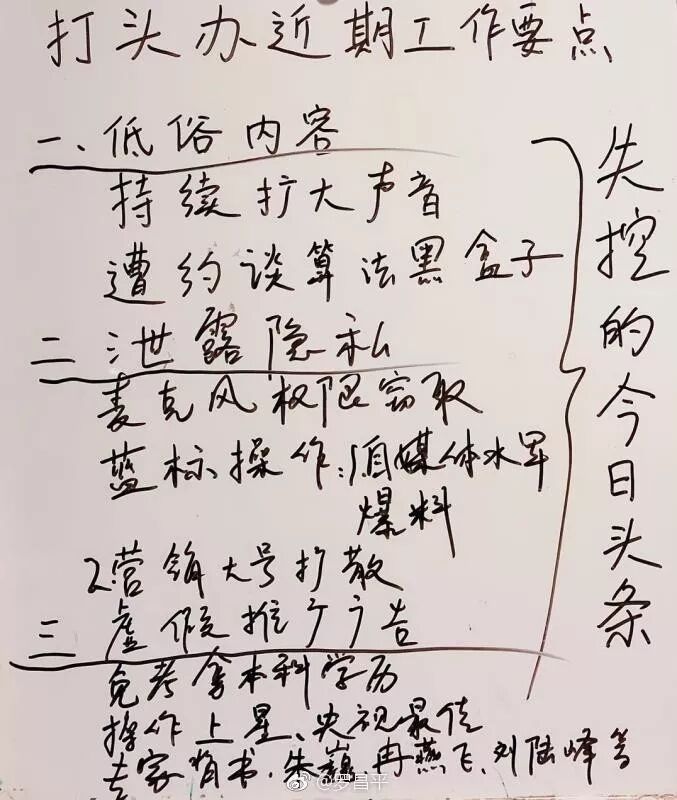 打头办近期工作要点
一、低俗内容
持续扩大声音
遭约谈算法黑盒子
二 泄露隐私
麦克风权限窃取
蓝标操作:1自媒体水军
爆料
2营销大号扩散
三 虚假推广广告
免考拿本科学历
操作上星、央视最佳
专家背书.朱巍、冉燕飞、刘陆峰等
失控的今日头条
@罗昌平